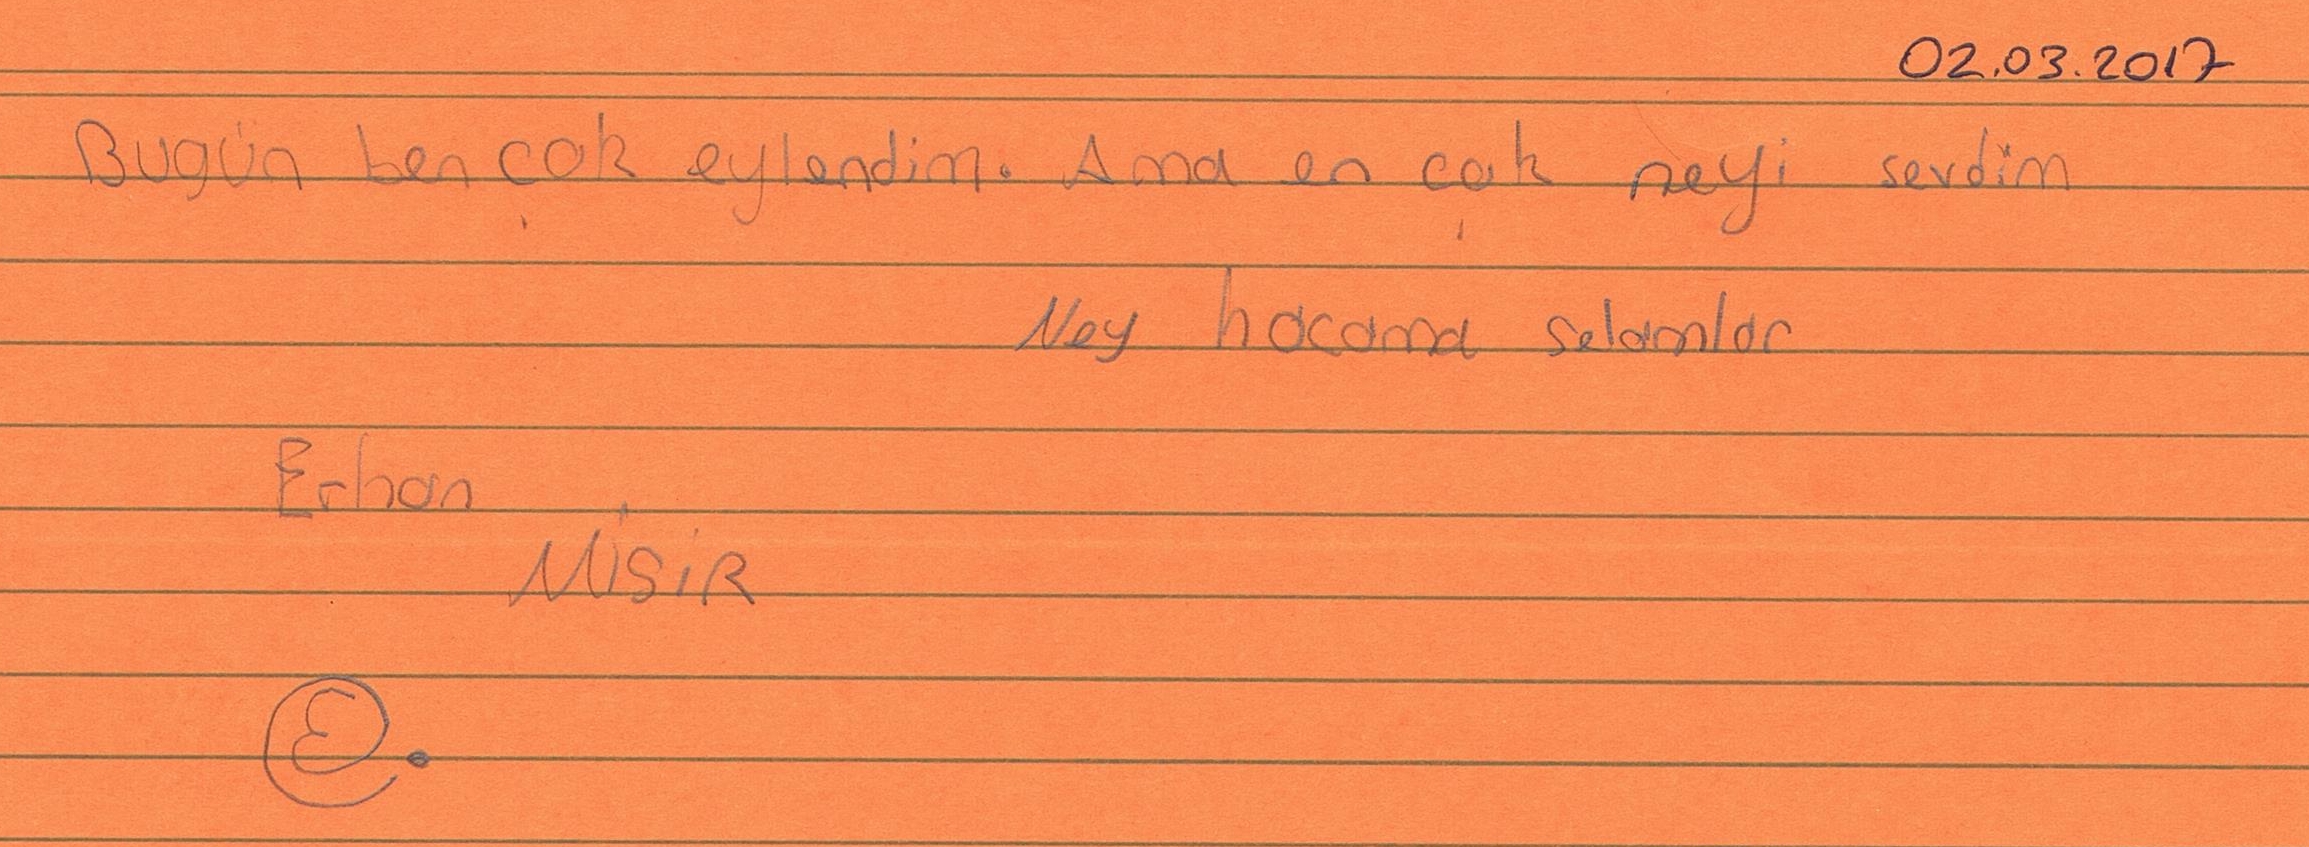 02.03.2017
Bugün ben çok eylendim. Ama en çok neyi sevdim
Ney hocama selamlar
Erhan
MİSİR
E.